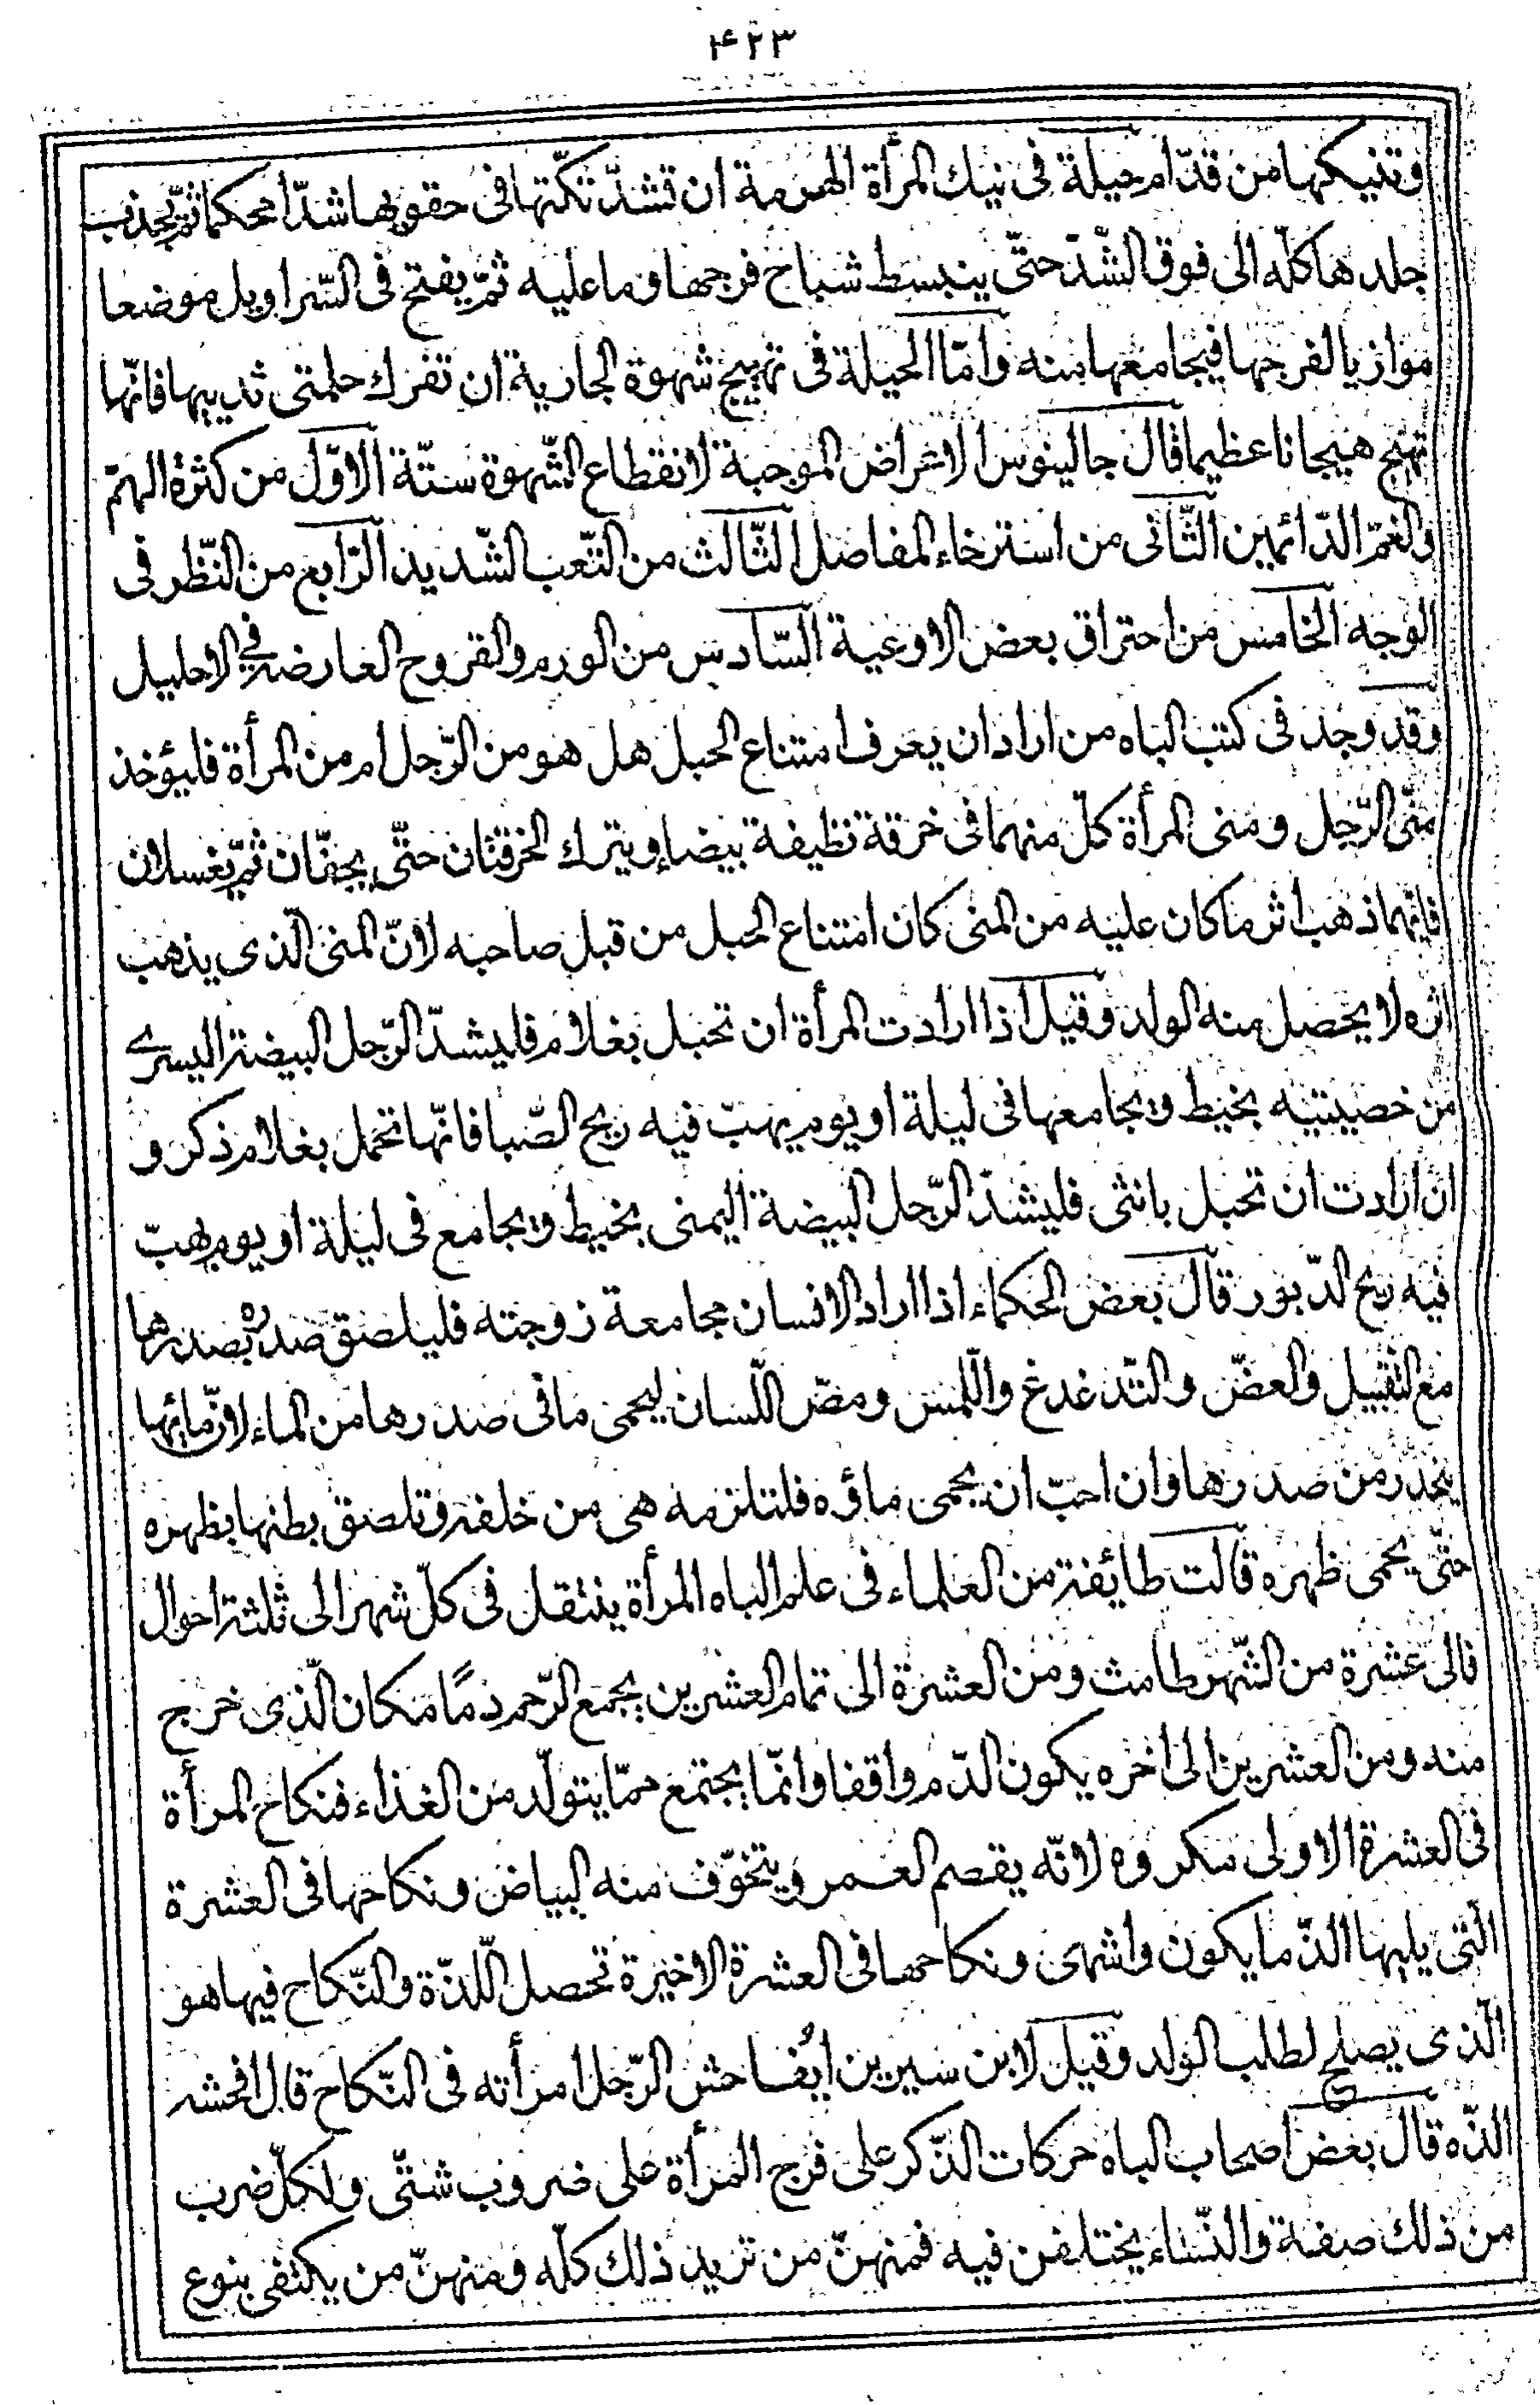 ۴۲۳
وتنيكها من قدّام حيلة فى نيك المرأة الهرمة ان تشدّ تكّتها فى حقويها شدّا محكما ثمّ يجذب
جلدها كلّه الى فوق الشّدّ حتّى ينبسط شباح فرجها وما عليه ثمّ يفتح فى السّراويل موضعا
موازيا لفرجها فيجامعها منه وامّا الحيلة فى تهييج شهوة الجارية ان تفرك حلمتى ثدييها فانّها
تهيج هيجانا عظيما قال جالينوس الاعراض الموجبة لانقطاع الشّهوة ستّة الاوّل من كثرة الهمّ
والغمّ الدّائمين الثّانى من استرخاء المفاصل الثّالث من التّعب الشّديد الرّابع من النّظر فى
الوجه الخامس من احتراق بعض الاوعية السّادس من الورم والقروح العارضة فى الاحليل
وقد وجد فى كتب الباه من اراد ان يعرف امتناع الحبل هل هو من الرّجل ام من المرأة فليؤخذ
منّى الرّجل ومنى المرأة كلّ منهما فى خرقة نظيفة بيضاء ويترك الخرقتان حتّى يجفّان ثمّ يغسلان
فايّهما ذهب اثر ما كان عليه من المنى كان امتناع الحبل من قبل صاحبه لانّ المنى الّذى يذهب
اثره لا يحصل منه الولد وقيل اذا ارادت المرأة ان تحبل بغلام فليشدّ الرّجل البيضة اليسرى
من خصيتيه بخيط ويجامعها فى ليلة او يوم يهبّ فيه ريح الصّبا فانّها تحمل بغلام ذكر و
ان ارادت ان تحبل بانثى فليشدّ الرّجل البيضة اليمنى بخيط ويجامع فى ليلة او يوم يهبّ
فيه ريح الدّبور قال بعض الحكماء اذا اراد الانسان مجامعة زوجته فليلصق صدره بصدرها
مع التّقبيل والعضّ والتّدغدغ واللّمس ومصّ اللّسان ليحمى ما فى صدرها من الماء لانّ مائها
ينحدر من صدرها وان احبّ ان يحمى ماؤه فلتلزمه هى من خلفه وتلصق بطنها بظهره
حتّى يحمى ظهره قالت طائفة من العلماء فى علم الباه المرأة ينتقل فى كلّ شهر الى ثلثة احوال
فالى عشرة من الشّهر طامث ومن العشرة الى تمام العشرين يجمع الرّحم دمًا مكان الّذى خرج
منه ومن العشرين الى اخره يكون الدّم واقفا وانّما يجتمع ممّا يتولّد من الغذاء فنكاح المرأة
فى العشرة الاولى مكروه لانّه يقصم العمر ويتخوّف منه البياض ونكاحها فى العشرة
الّتى يليها الذّ ما يكون واشهى ونكاحها فى العشرة الاخيرة تحصل اللّذّة والنّكاح فيها هو
الّذى يصلح لطلب الولد وقيل لابن سيرين ايُفاحش الرّجل امرأته فى النّكاح قال افحشه
الذّه قال بعض اصحاب الباه حركات الذّكر على فرج المرأة على ضروب شتّى ولكلّ ضرب
من ذلك صفة والنّساء يختلفن فيه فمنهنّ من تريد ذلك كلّه ومنهنّ من يكتفى بنوع